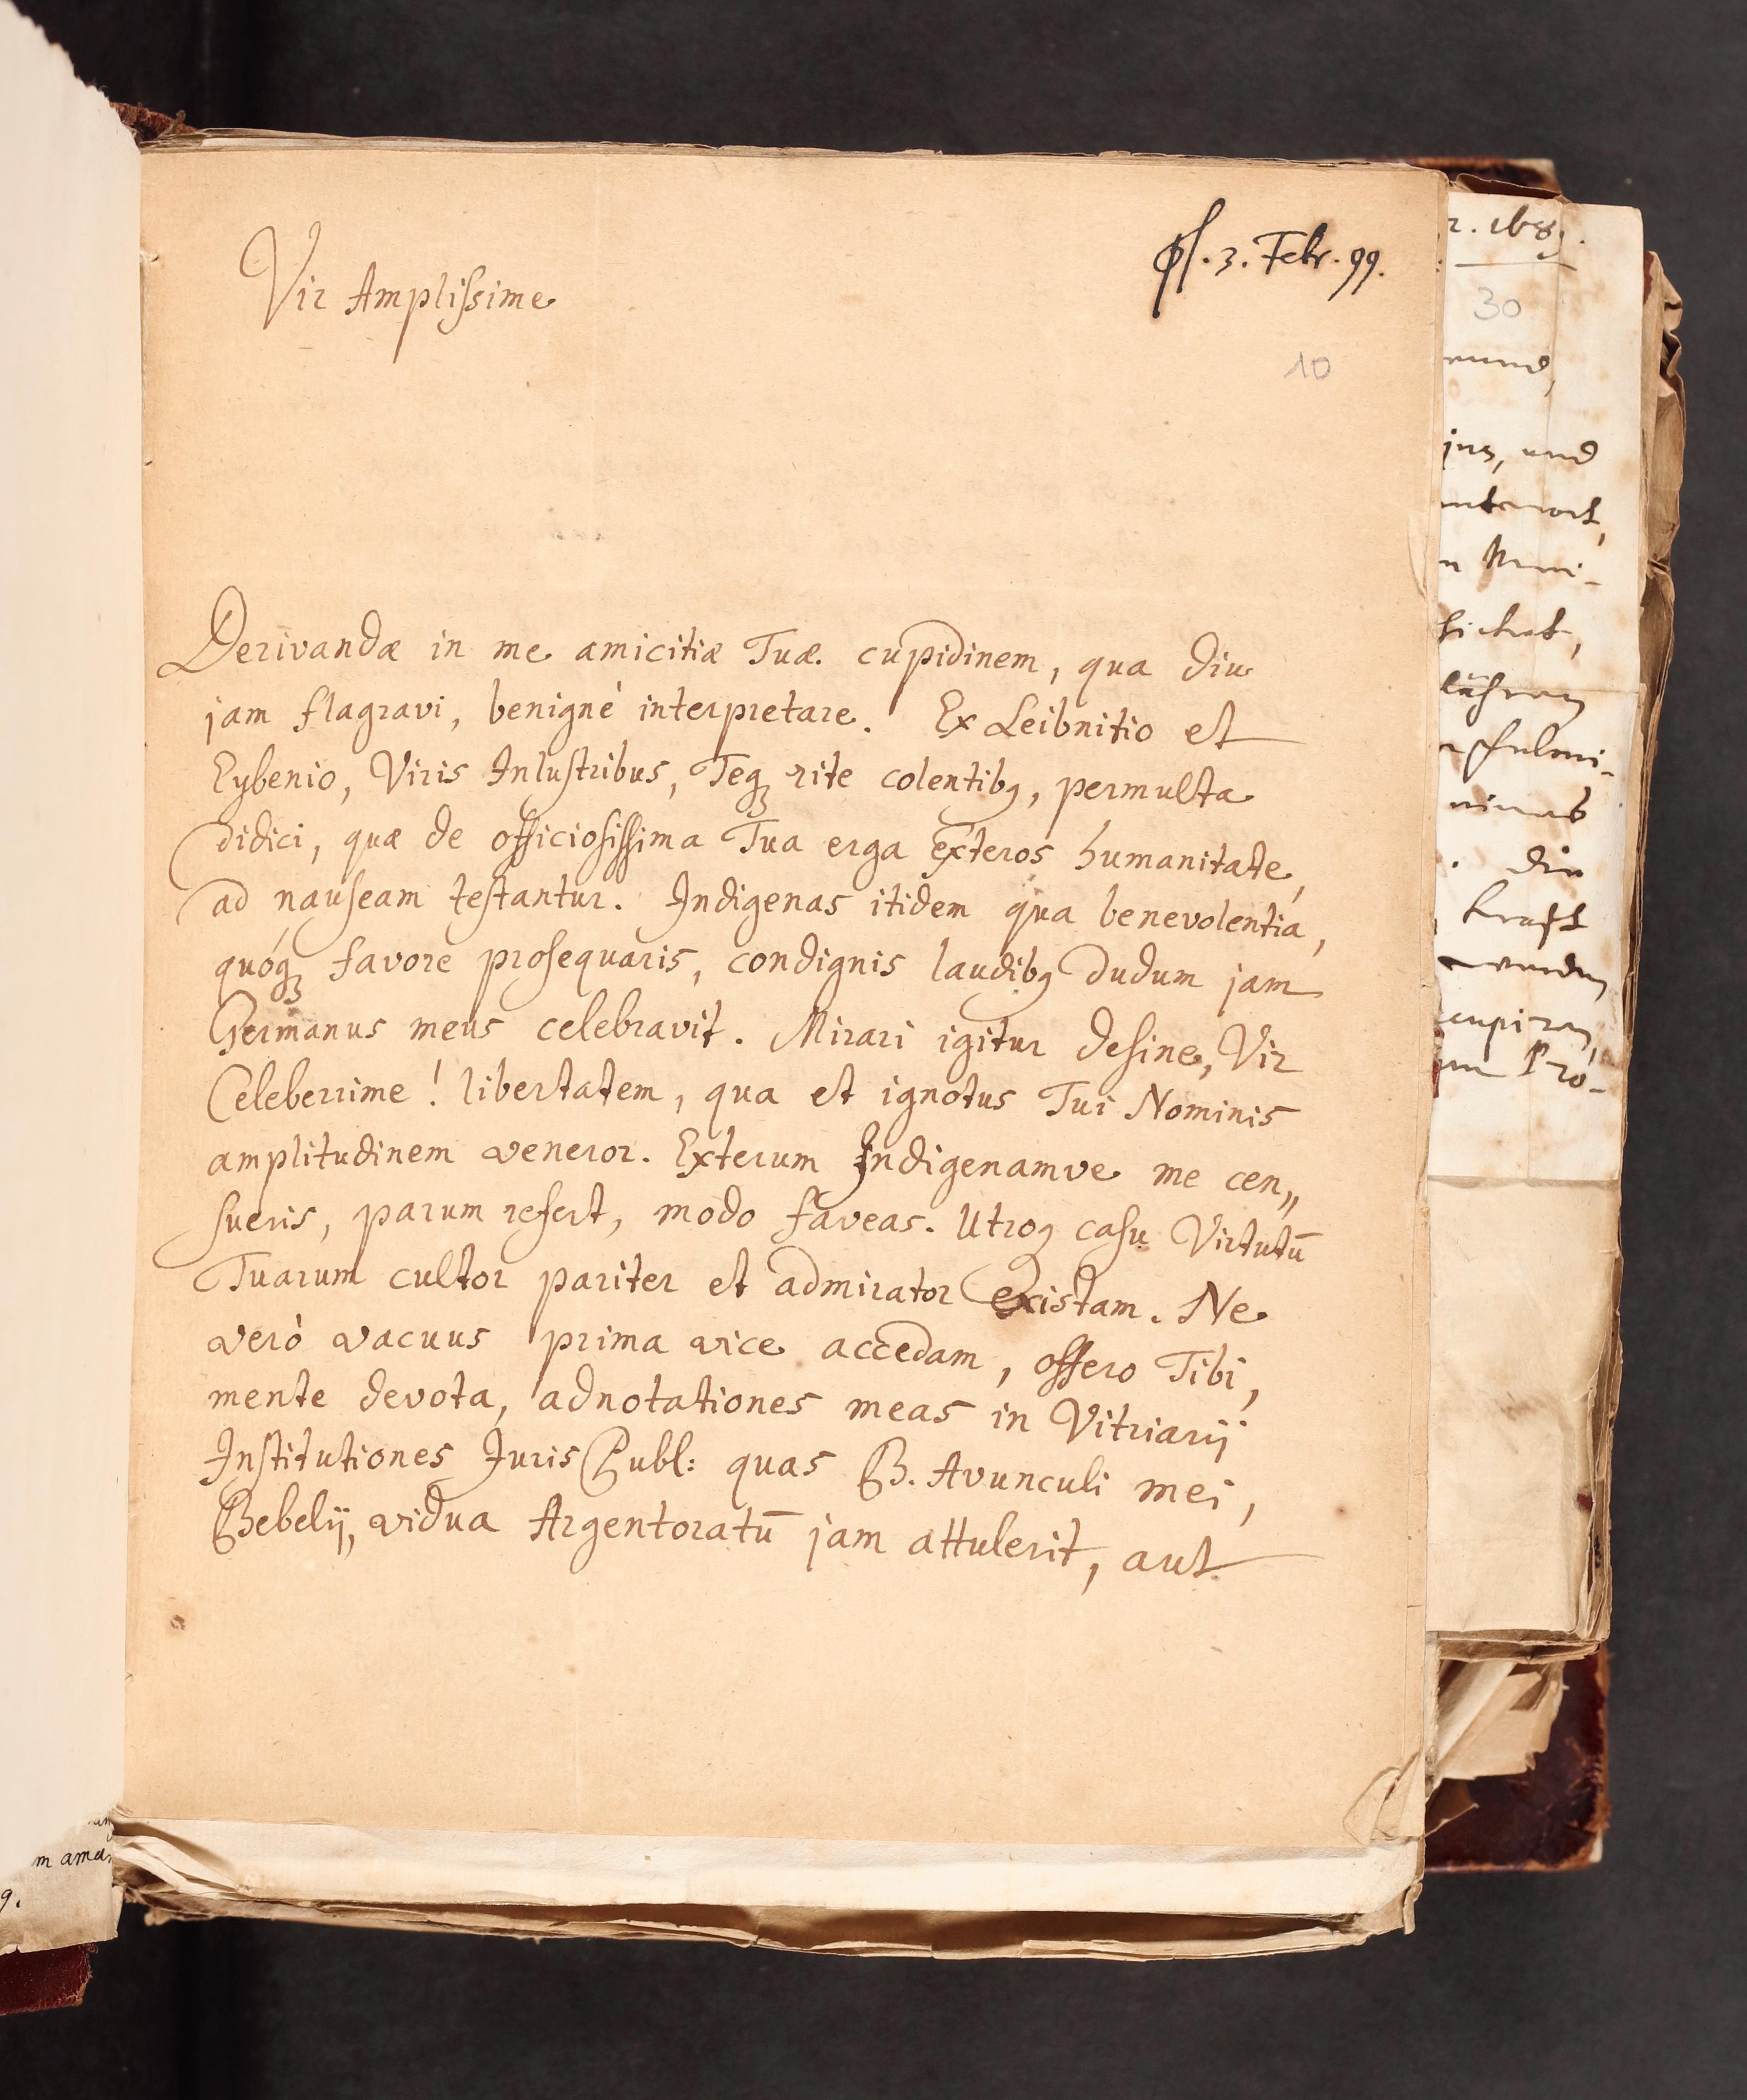 Vir Amplissime
pl. 3. Febr. 99.
10
Derivandæ in me amicitiæ Tuæ cupidinem, qua diu
jam flagravi, benignè interpretare. Ex Leibnitio et
Eybenio, Viris Inlustribus, Teq́ꝫ rite colentibꝫ, permulta
didici, quæ de officiosissima Tua erga exteros humanitate,
ad nauseam testantur. Indigenas itidem qua benevolentiâ,
quóqꝫ favore prosequaris, condignis laudibꝫ dudum jam
Germanus meus celebravit. Mirari igitur desine, Vir
Celeberrime! libertatem, qua et ignotus Tui Nominis
amplitudinem veneror. Exterum Indigenamve me cen„
sueris, parum refert, modo faveas. Utroqꝫ casu Virtutū
Tuarum cultor pariter et admirator existam. Ne
verò vacuus prima vice accedam, offero Tibi,
mente devota, adnotationes meas in Vitriarij
Institutiones Juris Publ: quas B. Avunculi mei,
Bebelij, vidua Argentoratū jam attulerit, aut
30
und
die
Krafft
m ama
9.